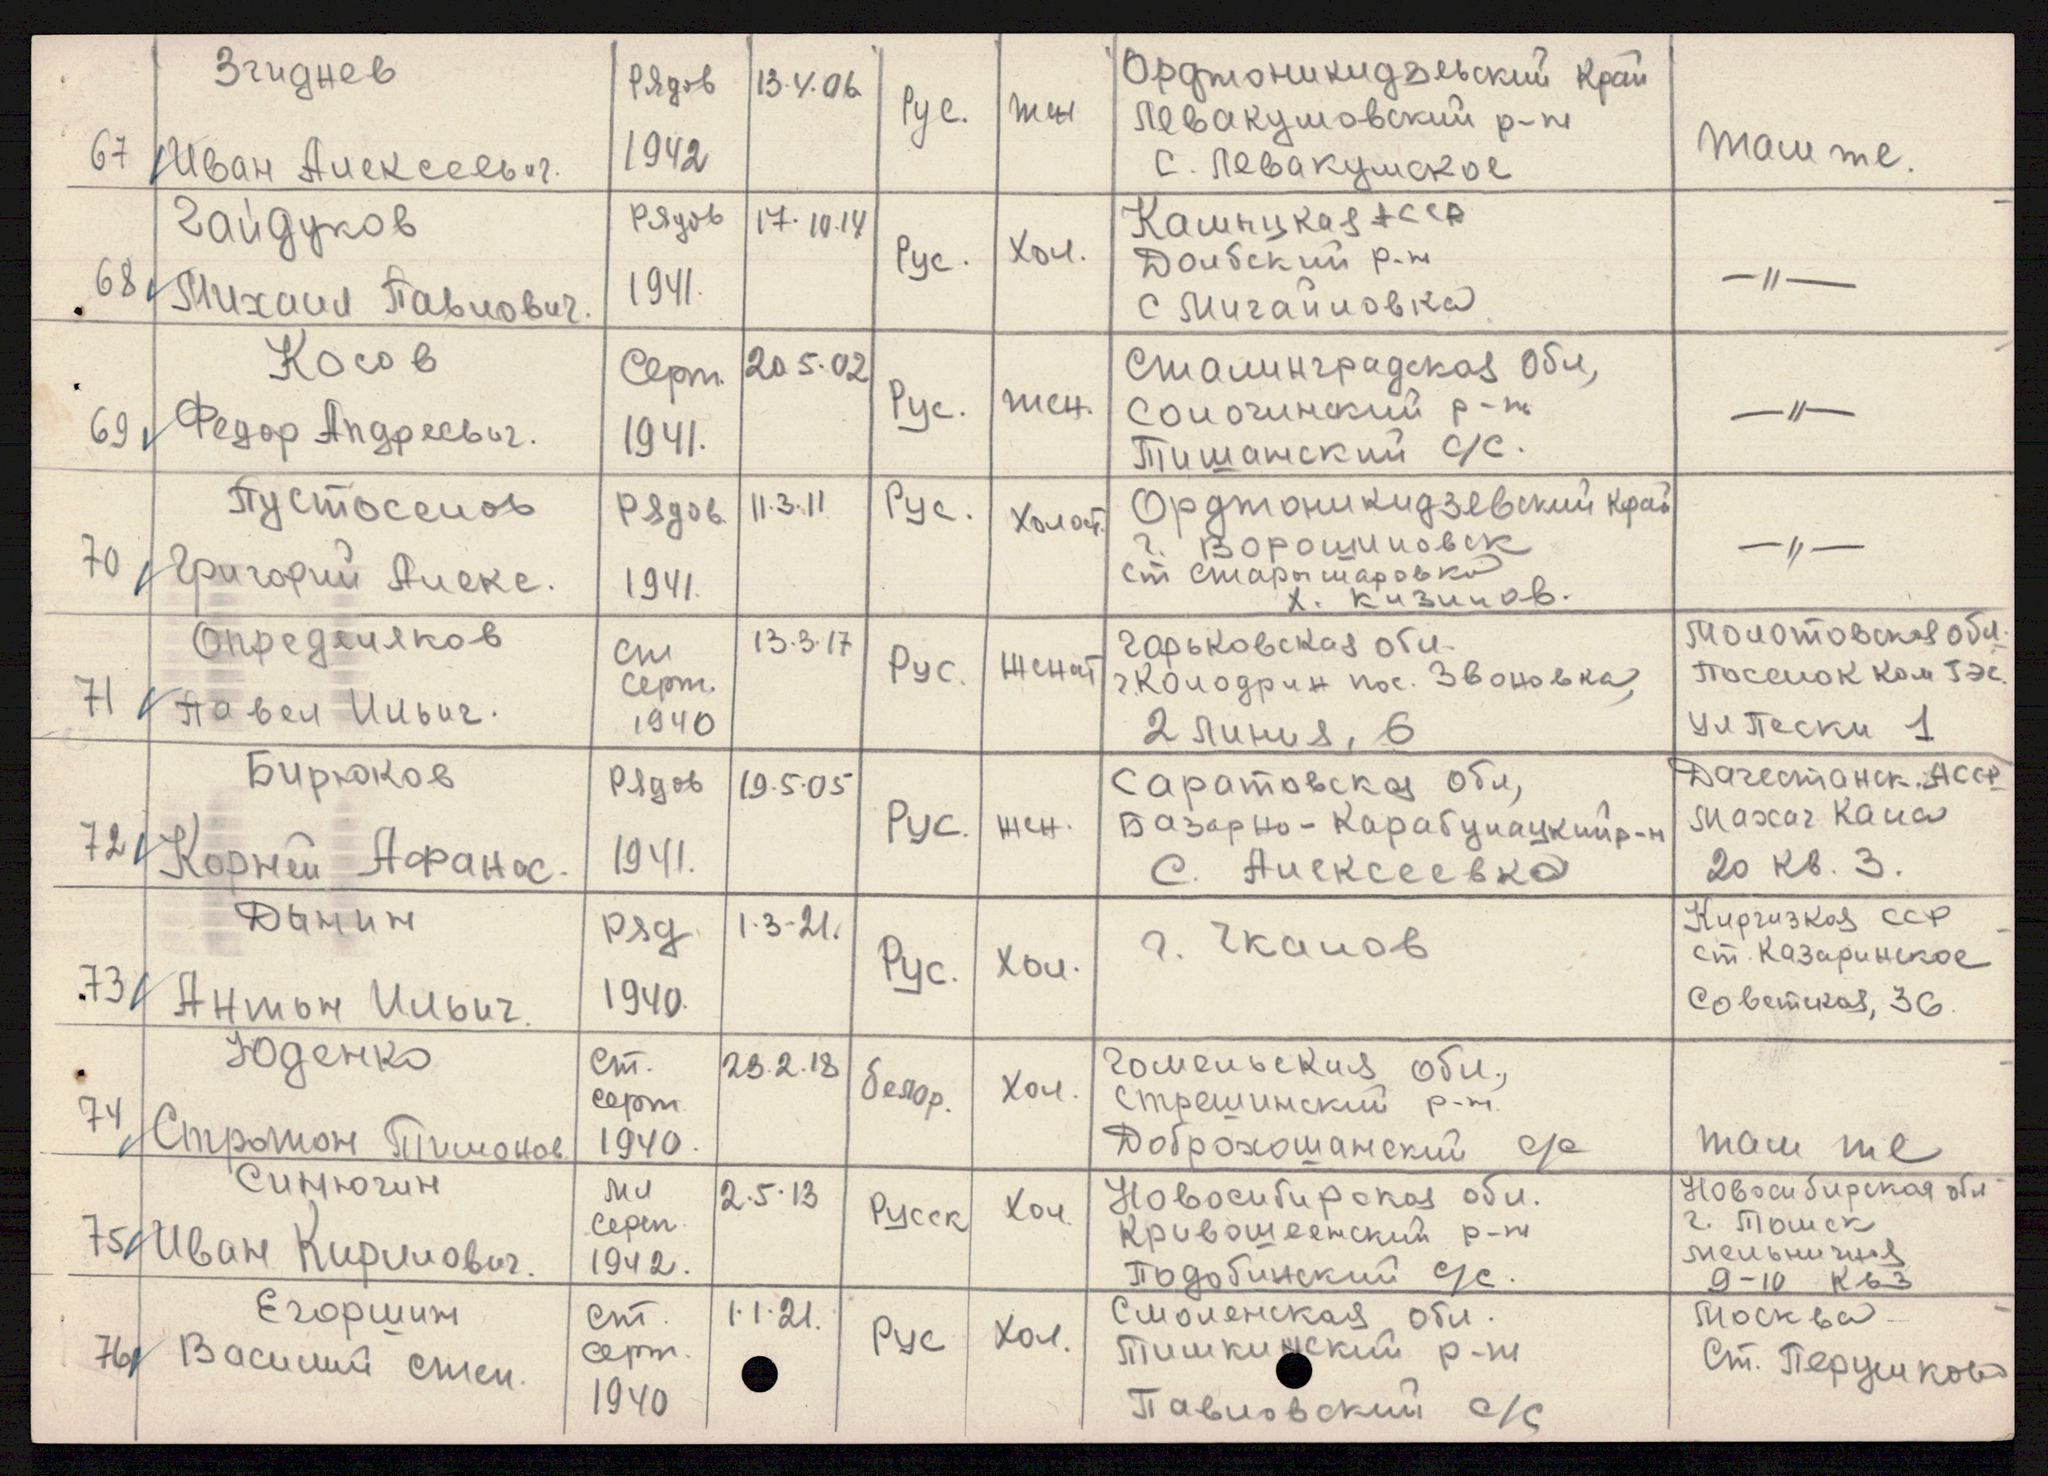 67
Згиднев
Иван Алексеевич.
Рядов
1942
13.4.06
Рус.
жен
Орджоникидзевский Край
Левакумовский р-н
с. Левакумское
там же.
68
Гайдуков
Михаил Павлович.
Рядов
1941.
17.10.14
Рус.
Хол.
Калмыцкая АССР
Долбский р-н
с Михайловка
—"—
69
Косов
Федор Андреевич.
Серж.
1941.
20.5.02
Рус.
жен.
Сталинградская обл,
Солочинский р-н
Тишанский с/с.
—"—
70
Пустоселов
Григорий Алекс.
Рядов
1941.
11.3.11
Рус.
Холост.
Орджоникидзевский край
г. Ворошиловск
ст Старымаровка
х. Кизилов.
—"—
71
Определяков
Павел Ильич.
ст
серж.
1940
13.3.17
Рус.
женат
Горьковская обл.
г.Колодрин пос. Звоновка,
2 линия, 6
Молотовская обл.
Поселок Ком ГЭС.
ул Пески 1
72
Бирюков
Корней Афанас.
Рядов
1941.
19.5.05
Рус.
жен.
Саратовская обл,
Базарно-Карабулацкий р-н
с. Алексеевка
Дагестанск. АССР
Махач Кала
20 кв. 3.
73
Дынин
Антон Ильич.
Ряд
1940.
1.3-21.
Рус.
Хол.
г. Чкалов
Киргизкая ССР
ст. Казаринское
Советская, 36.
74
Юденко
Стратон Тимонов.
ст.
серж.
1940.
23.2.18
белор.
Хол.
Гомельская обл.,
Стрешинский р-н.
Доброхошанский с/с
там же
75
Синюгин
Иван Кирилович.
мл
серж.
1942.
2.5.13
Русск
Хол.
Новосибирская обл.
Кривошеенский р-н
Подобинский с/с.
Новосибирская обл
г. Томск
мельничная
9-10 кв3
76
Егоршин
Василий Степ.
ст.
серж.
1940
1.1.21.
Рус
Хол.
Смоленская обл.
Тишкинский р-н
Павловский с/с
Москва
Ст. Перушково